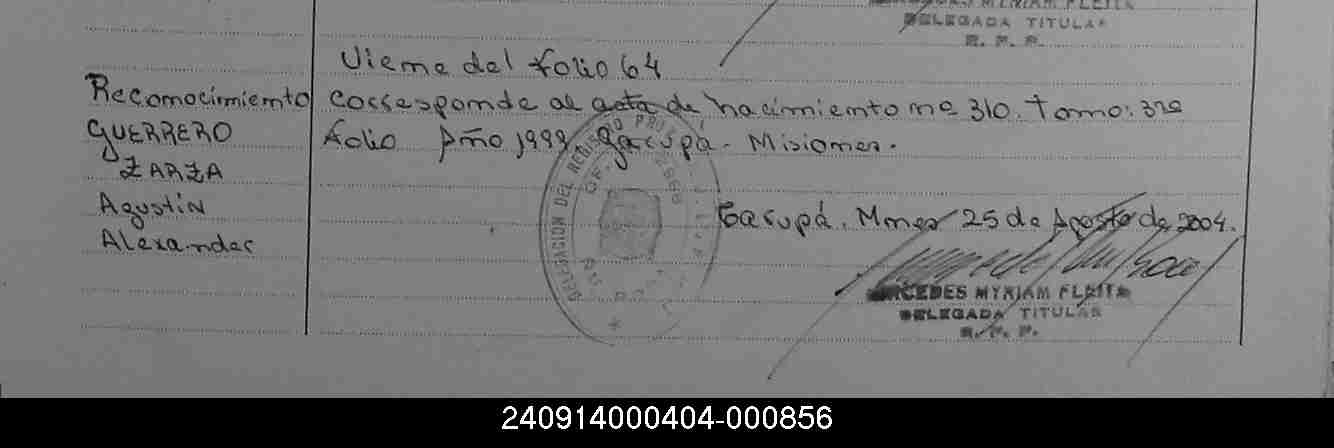 DELEGADA TITULAR
R. P. P.
Viene del folio 64
Reconocimiento corresponde al acta de nacimiento nº 310. Tomo: 3rº
GUERRERO folio Año 1999. Garupá - Misiones.
ZARZA
Agustín Garupá. Mnes 25 de Agosto de 2004.
Alexander
MERCEDES MYRIAM FLEITA
DELEGADA TITULAR
R. P. P.
DELEGACION DEL REGISTRO
240914000404-000856